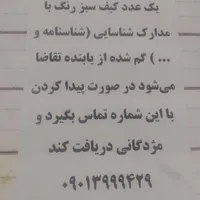 یک عدد کیف سبز رنگ با
مدارک شناسایی (شناسنامه و
... ) گم شده از یابنده تقاضا
می‌شود در صورت پیدا کردن
با این شماره تماس بگیرد و
مژدگانی دریافت کند
۰۹۰۱۳۹۹۹۴۲۹